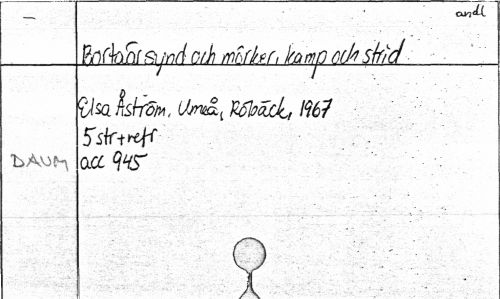 andl
–
Borta är synd och mörker, kamp och strid
Elsa Åström, Umeå, Röbäck, 1967
5 str + refr
DAUM acc 945